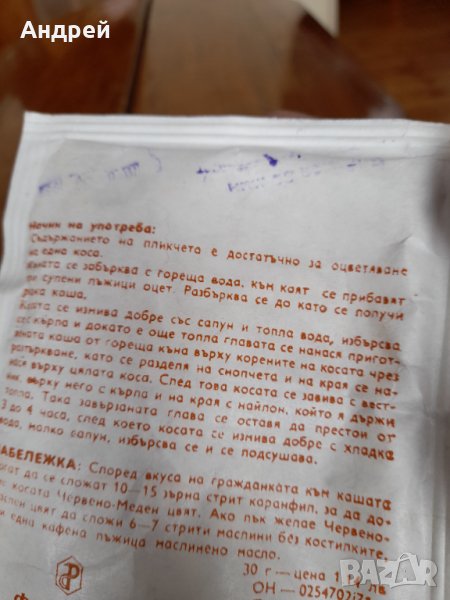 Андрей
Начин на употреба:
Съдържанието на пликчето е достатъчно за оцветяване
на една коса.
Къната се забърква с гореща вода, към каят се прибавят
ри супени лъжици оцет. Разбърква се до като се получи
рядка каша.
Косата се измива добре със сапун и топла вода, избърсва
се с кърпа и докато е още топла главата се нанася пригот-
вената каша от гореща къна върху корените на косата чрез
разтъркване, като се разделя на снопчета и на края се на-
нася върху цялата коса. След това косата се завива с вест-
ник, върху него с кърпа и на края с найлон, който я държи
топла. Така завързаната глава се оставя да престои от
3 до 4 часа, след което косата се измива добре с хладка
вода, малко сапун, избърсва се и се подсушава.
АБЕЛЕЖКА: Според вкуса на гражданката към кашата
могат да се сложат 10—15 зърна стрит карамфил, за да до-
косата Червено-Меден цвят. Ако пък желае Червено-
цвят да сложи 6—7 стрити маслини без костилките,
и една кафена лъжица маслинено масло.
30 г — цена лв
ОН — 0254702
BAZAR